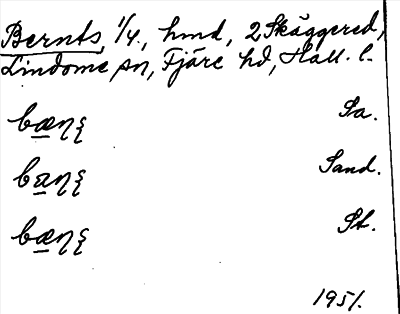 Bernts, 1/4, hmd, 2 Skäggered,
Lindome sn, Fjäre hd, Hall. l.
bæɳʂ Sa.
baɳʂ Sand.
bæɳʂ St.
1951.